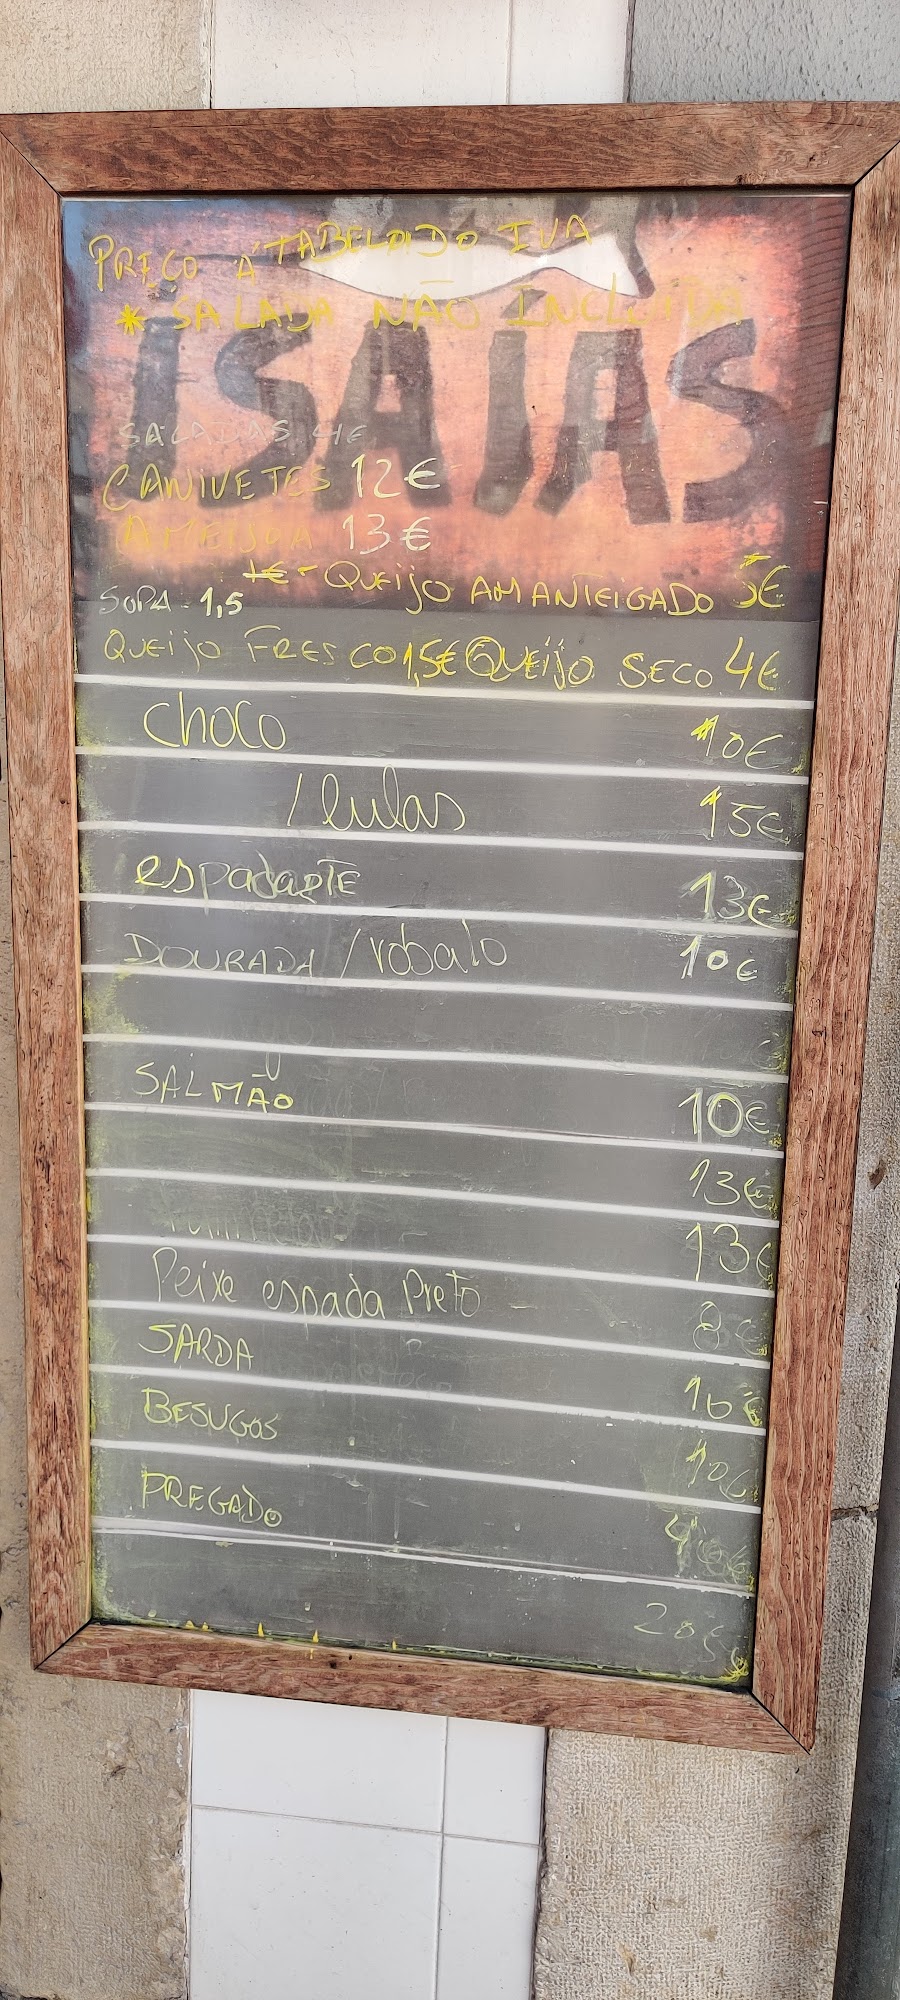 PREÇO Á TABELADO IVA
* SALADA NÃO INCLUIDA
ISAIAS
SALADAS 4€
CANIVETES 12€
AMEIJOA 13€
1€ - QUEIJO AMANTEIGADO 5€
SOPA - 1,5
QUEIJO FRESCO 1,5€ QUEIJO SECO 4€
choco 10€
/ lulas 15€
espadaRTE 13€
DOURADA / robalo 10€
SALMÃO 10€
13€
13€
Peixe espada Preto - 8€
SARDA 10€
BESUGOS 10€
PREGADO
20€